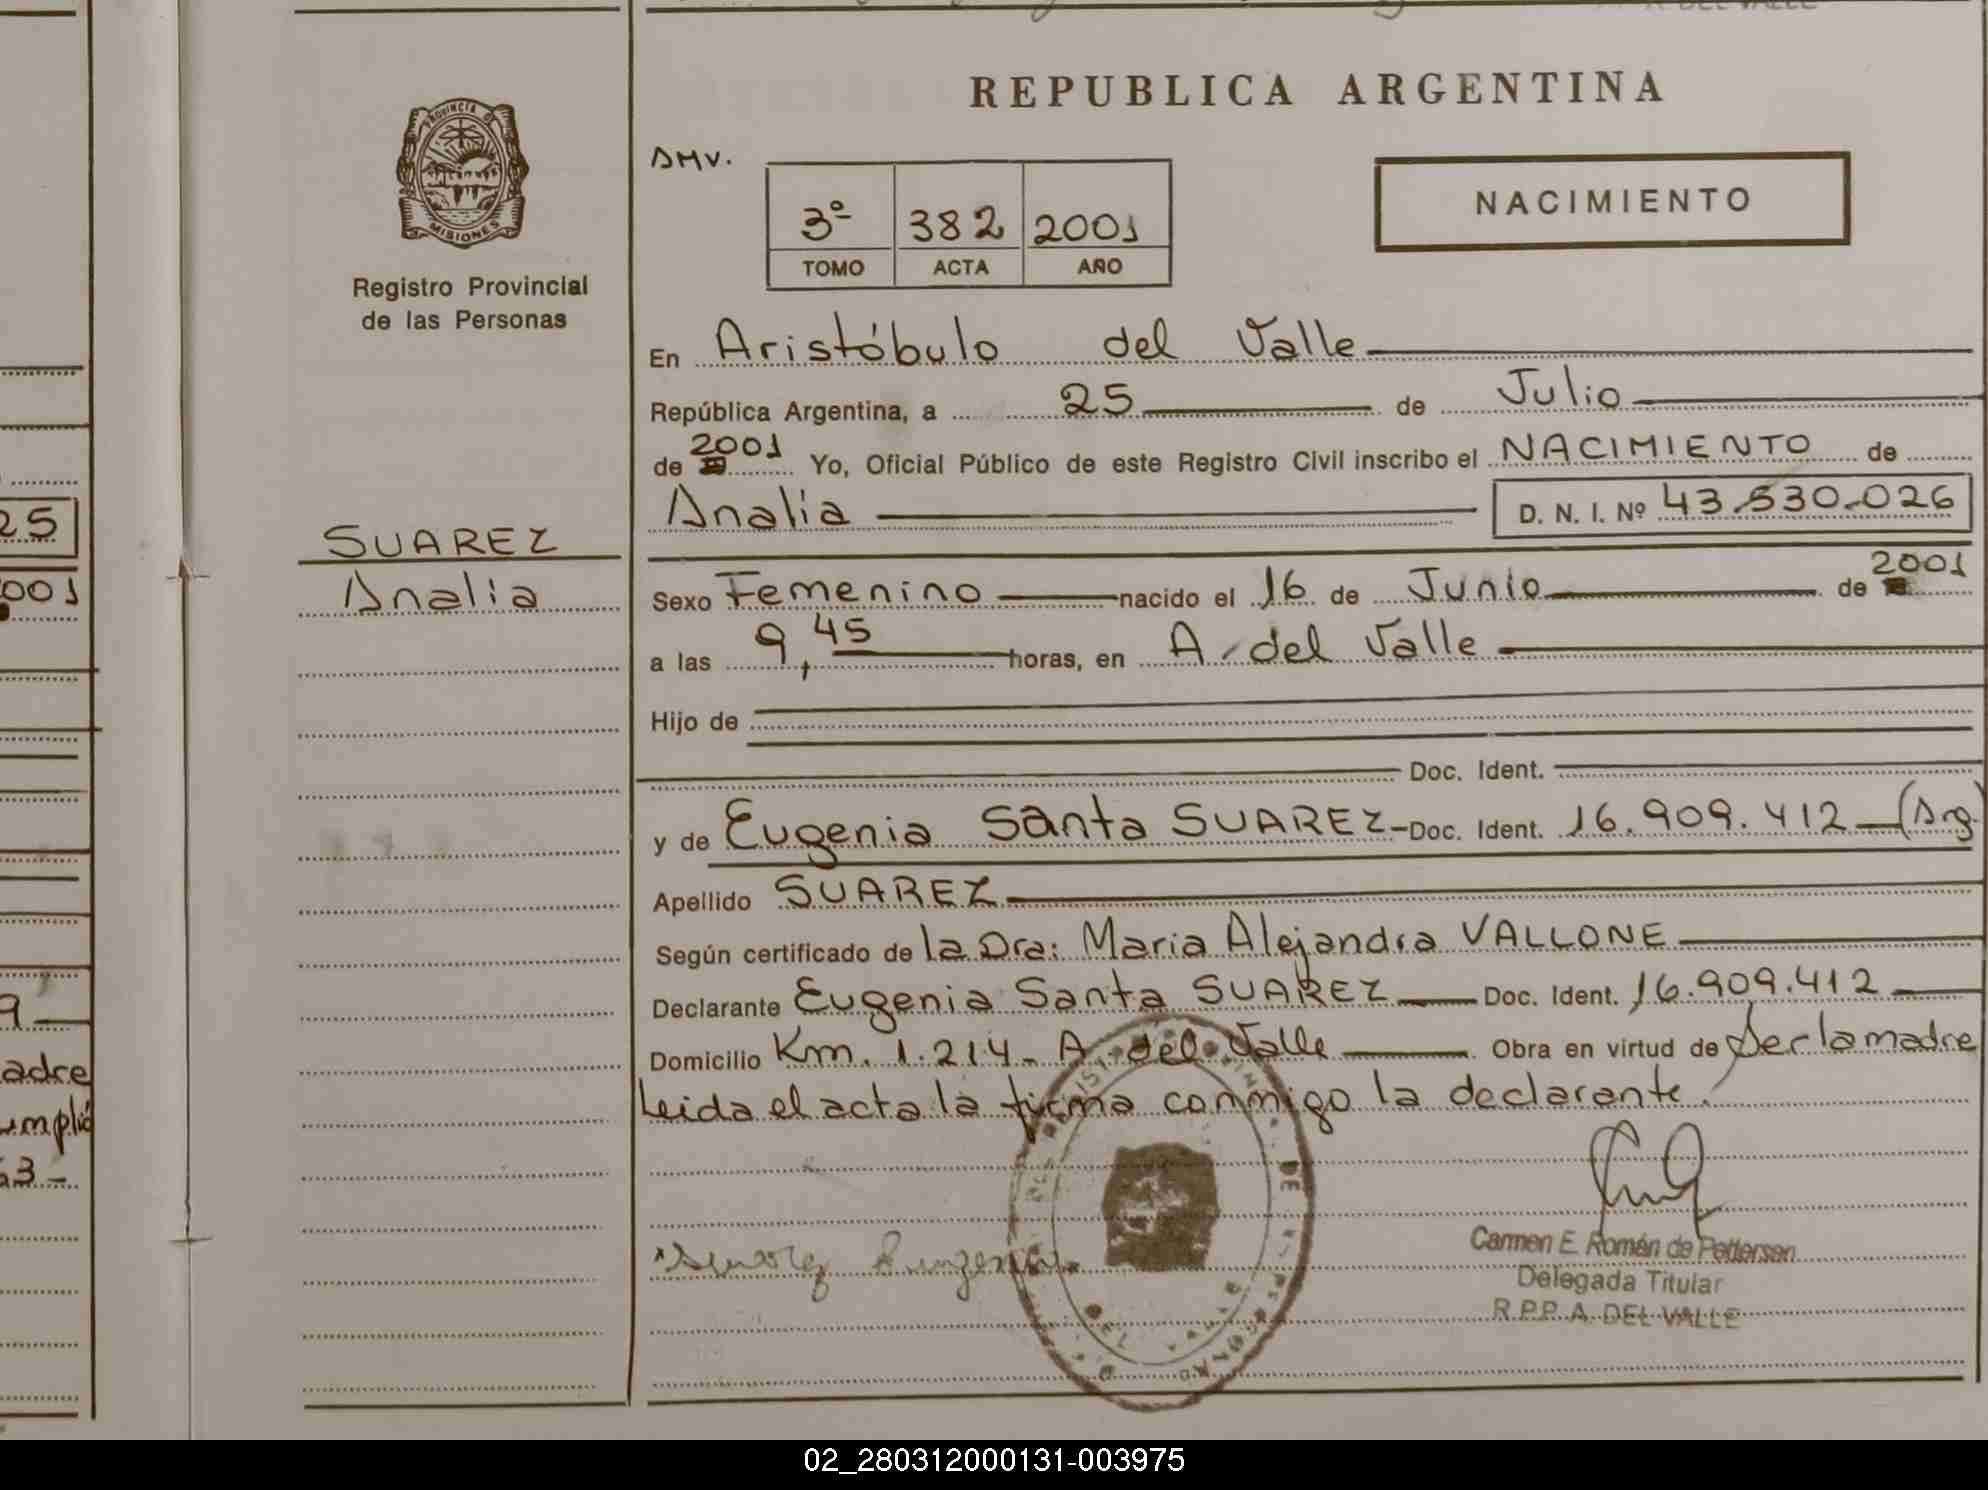 REPUBLICA ARGENTINA
PROVINCIA D
MISIONES
Registro Provincial
de las Personas
AMV.
3º 382 2001
TOMO ACTA AÑO
NACIMIENTO
En Aristóbulo del Valle
República Argentina, a 25 de Julio
de 2001 Yo, Oficial Público de este Registro Civil inscribo el NACIMIENTO de
Analia D. N. I. Nº 43.530.026
SUAREZ
Analia
Sexo Femenino nacido el 16 de Junio de 2001
a las 9,45 horas, en A. del Valle
Hijo de
Doc. Ident.
y de Eugenia Santa SUAREZ Doc. Ident. 16.909.412 (Arg.
Apellido SUAREZ
Según certificado de la Dra: Maria Alejandra VALLONE
Declarante Eugenia Santa SUAREZ Doc. Ident. 16.909.412
Domicilio Km. 1.214- A. del Valle Obra en virtud de ser la madre
Leida el acta la firma conmigo la declarante.
Suarez Eugenia
Carmen E. Román de Pettersen
Delegada Titular
R.P.P. A. DEL VALLE
DEL VALLE
25
001
9
adre
umplió
53-
02_280312000131-003975